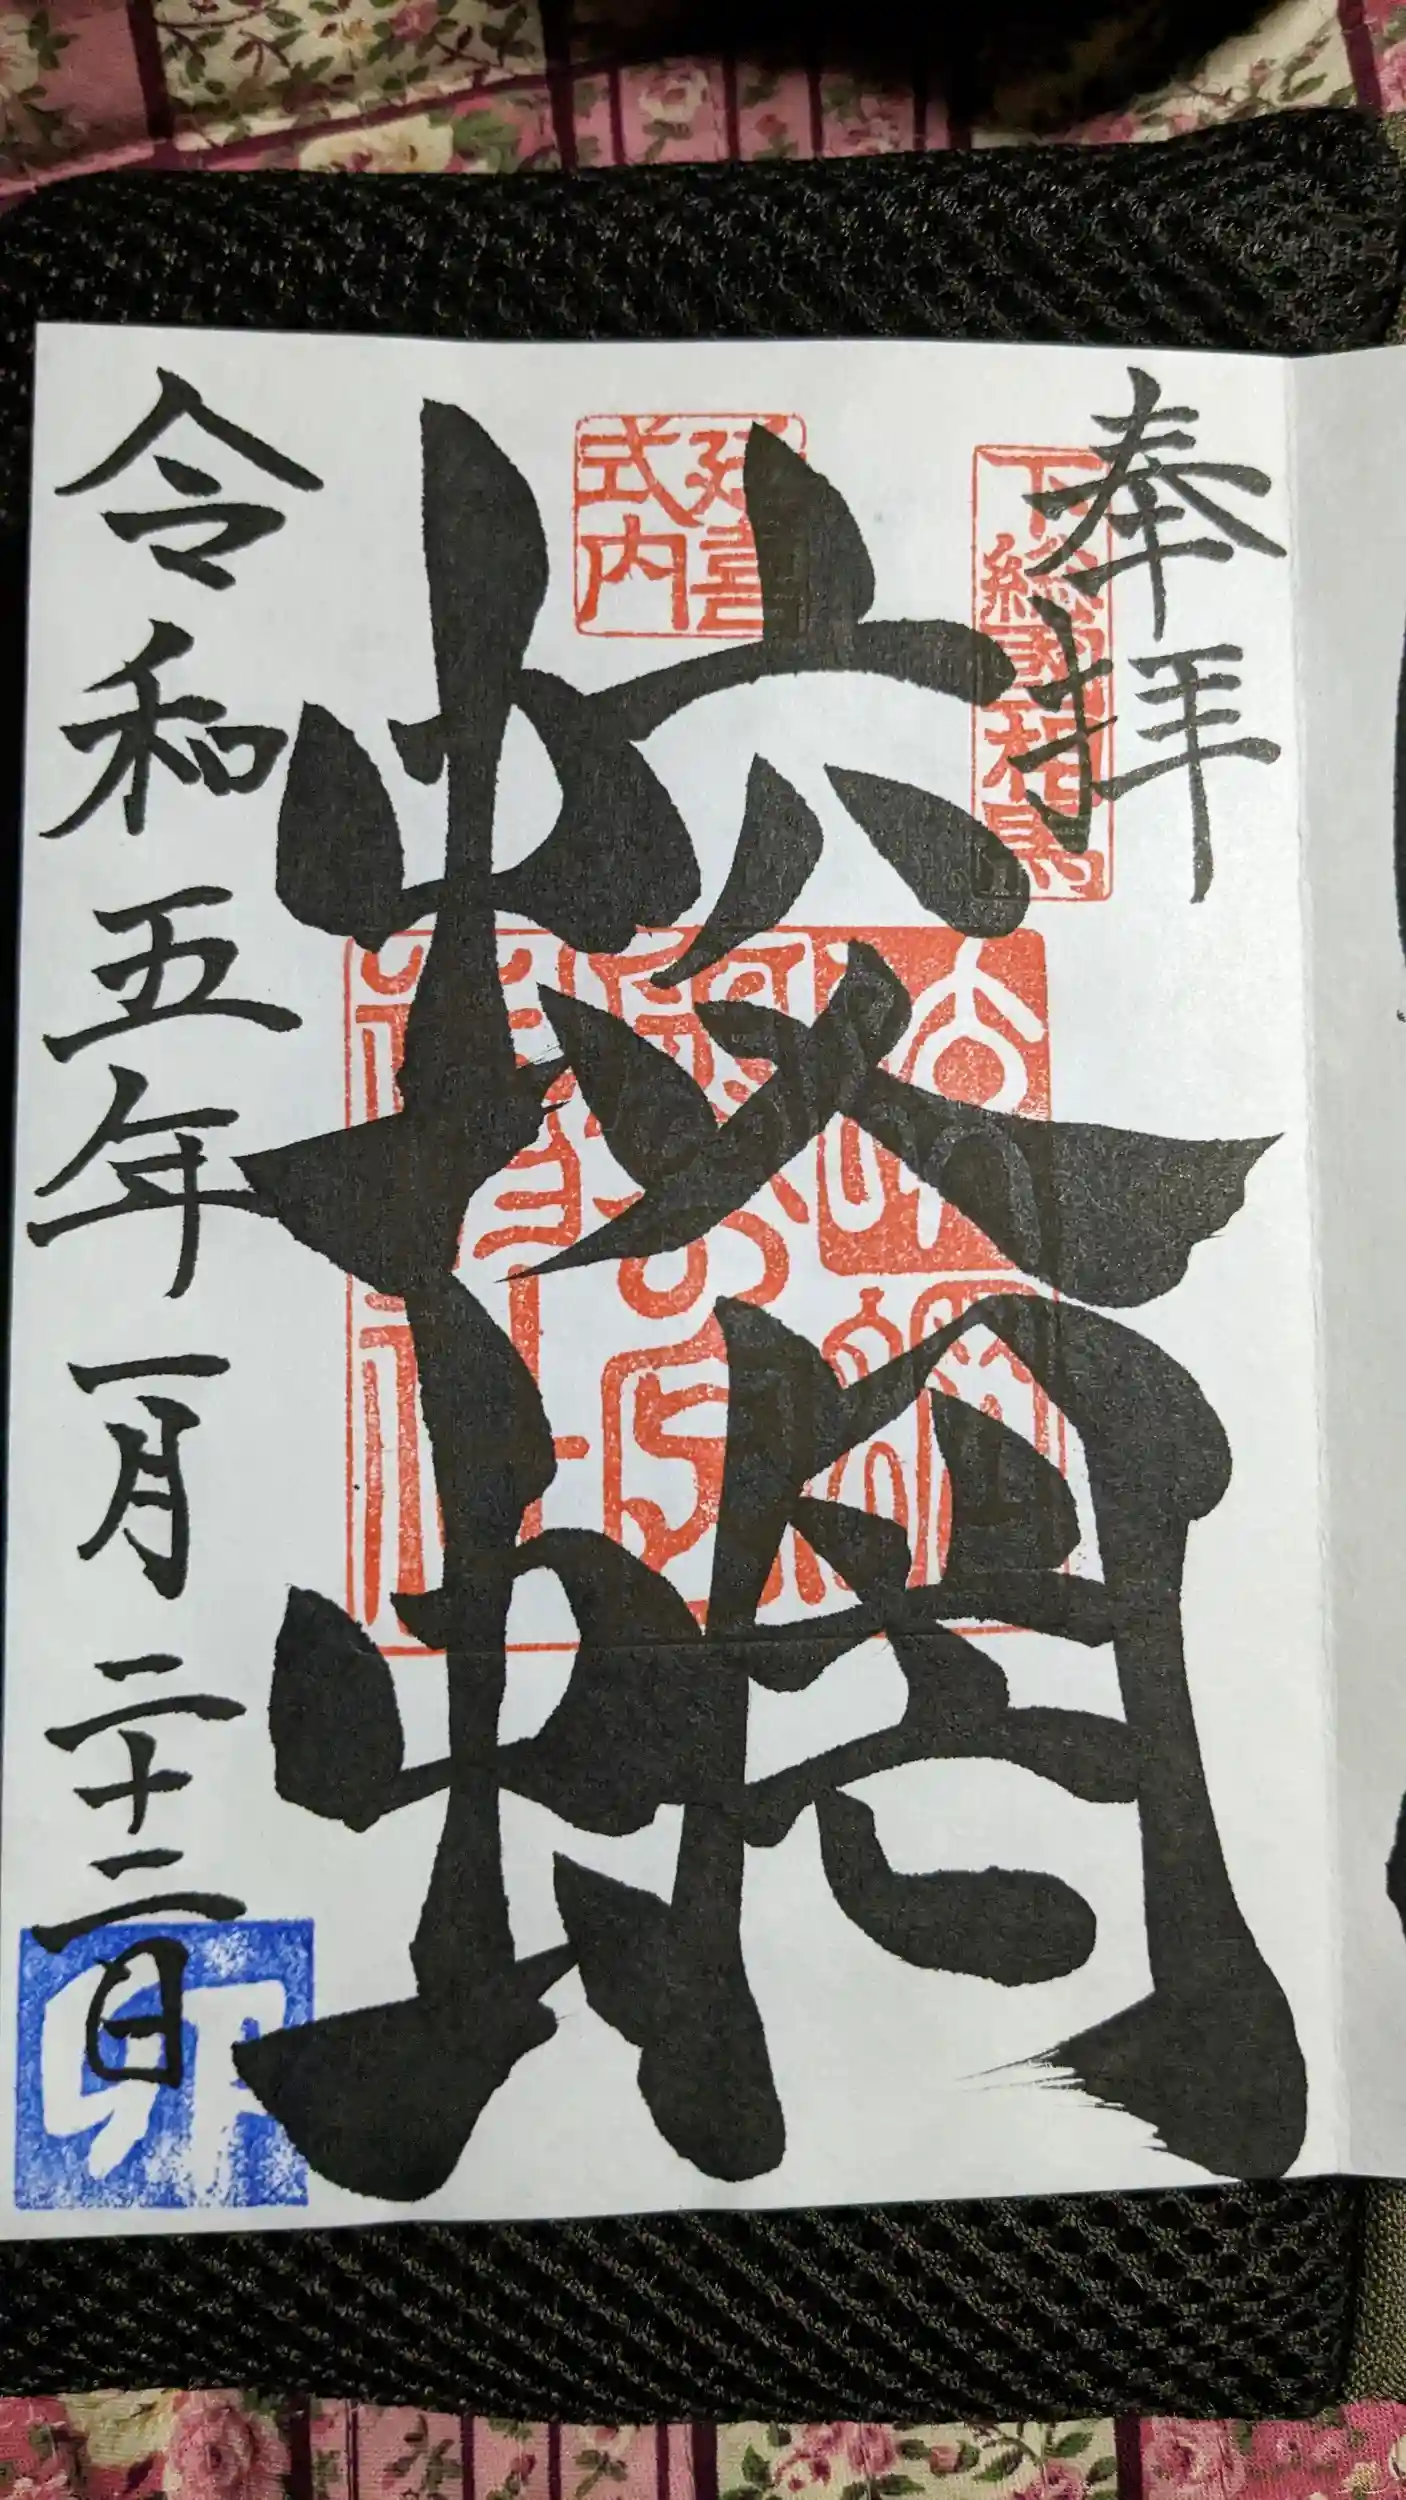 奉拝
下総國相馬
延喜
式内
蛟蝄
神社
令和五年一月二十二日
卯